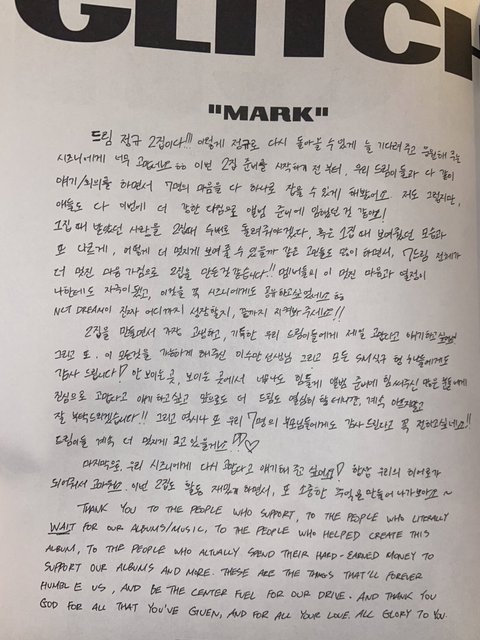 GLITCH
"MARK"
드림 정규 2집이다!!! 이렇게 정규로 다시 돌아올 수 있게 늘 기다려 주고 응원해 주는
시즈니에게 너무 고맙네요 ㅎㅎ 이번 2집 준비를 시작하기 전부터, 우리 드림이들과 다 같이
얘기/회의를 하면서 7명의 마음을 다 하나로 잡을 수 있게 해봤어요. 저도 그렇지만,
애들도 다 이번에 더 강한 다짐으로 앨범 준비에 임했던 것 같아요!
1집 때 받았던 사랑을 2집때 두배로 돌려줘야겠다, 혹은 1집 때 보여줬던 모습과
또 다르게, 어떻게 더 멋지게 보여줄 수 있을까 같은 고민들도 많이 하면서, 7드림 전체가
더 멋진 마음가짐으로 2집을 만든것 같습니다!! 멤버들의 이 멋진 마음과 열정이
나한테도 자극이 됐고, 이것을 꼭 시즈니에게도 공유하고 싶었네요 ㅎㅎ
NCT DREAM이 진짜 어디까지 성장할지, 끝까지 지켜봐 주세요!!
2집을 만들면서 가장 고생하고, 기특한 우리 드림이들에게 제일 고맙다고 얘기하고 싶어요!
그리고 또, 이 모든것을 가능하게 해주신 이수만 선생님 그리고 모든 SM식구 형 누나들에게도
감사드립니다! 안 보이는 곳, 보이는 곳에서 너무나도 힘들게 앨범 준비에 힘써주신 많은 분들에게
진심으로 고맙다고 얘기하고 싶고 앞으로도 더 드림도 열심히 할 테니깐, 계속
잘 부탁드리겠습니다!! 그리고 역시나 또 우리 7명의 부모님들에게도 감사드린다고 꼭 전하고 싶네요!!
드림이들 계속 더 멋지게 크고 있을게요!! ♡♡
마지막으로, 우리 시즈니에게 다시 고맙다고 얘기해 주고 싶어요! 항상 우리의 히어로가
되어줘서 고마워요. 이번 2집도 활동 재밌게 하면서, 또 소중한 추억을 만들어 나가봐요 ~
THANK YOU TO THE PEOPLE WHO SUPPORT, TO THE PEOPLE WHO LITERALLY
WAIT FOR OUR ALBUMS/MUSIC, TO THE PEOPLE WHO HELPED CREATE THIS
ALBUM, TO THE PEOPLE WHO ACTUALLY SPEND THEIR HARD-EARNED MONEY TO
SUPPORT OUR ALBUMS AND MORE. THESE ARE THE THINGS THAT'LL FOREVER
HUMBLE US, AND BE THE CENTER FUEL FOR OUR DRIVE. AND THANK YOU
GOD FOR ALL THAT YOU'VE GIVEN, AND FOR ALL YOUR LOVE. ALL GLORY TO YOU.